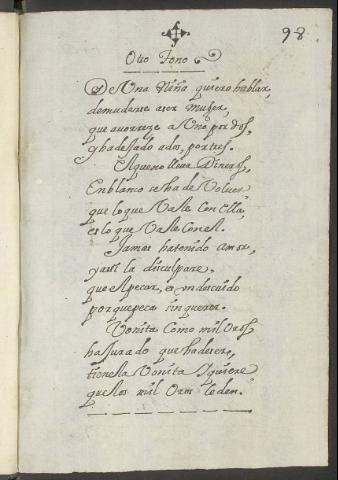 98
Otro Tono
De Una Niña quiero hablar,
de mudarse a ser muger,
que avorreze a Uno por dos,
y ha dejado a dos, por tres.
Aqueno lleva Dineros,
En blanco se ha de Volver
que lo que Vale Con Ella,
es lo que Vale Con el.
Jamas ha tenido amor,
y assi la disculpare,
que el pecar, es un descuido
por que peca sin querer.
Vonita Como mil Oros
ha Jurado que ha de ser,
tienela Vonita quiere
que los mil Oros le den.